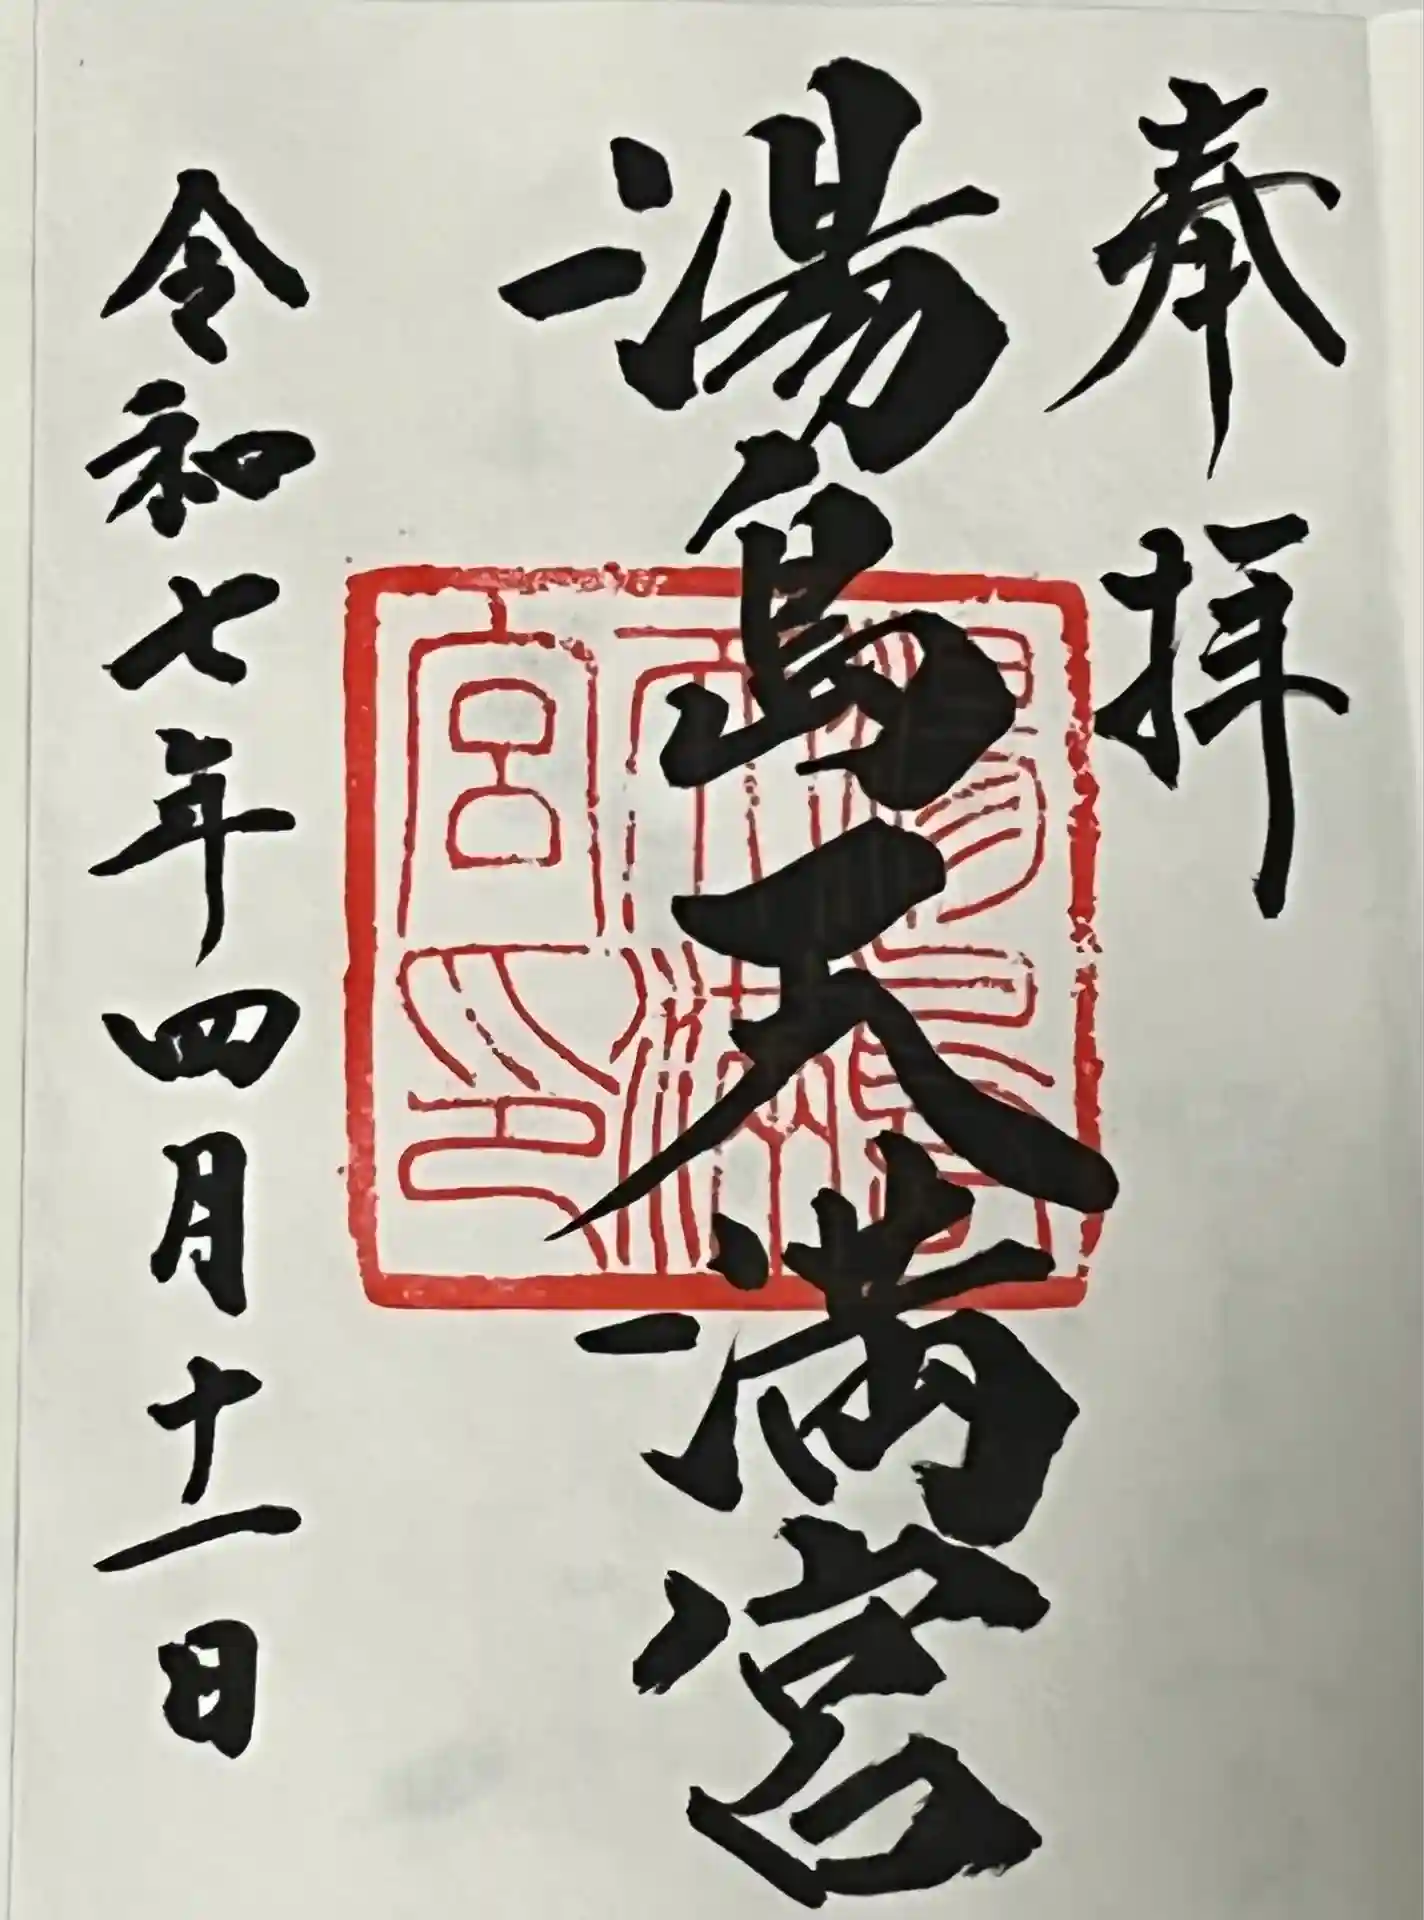 奉拝
湯島天満宮
湯島天満宮印
令和七年四月十一日